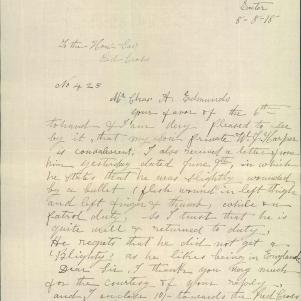 Exeter
8-8-15
To the Hon. Sec
Red Cross
No 423
Mr Chas A. Edmunds
your favor of the 6th
to hand & I am very pleased to see
by it, that my son private W. J. Harper
is convalescent. I also received a letter from
him yesterday dated June 9th in which
he states that he was slightly wounded
by a bullet (flesh wound in left thigh
and left finger & thumb, while on
patrol duty, so I trust that he is
quite well & returned to duty,
He regrets that he did not get a
"Blighty" as he likes being in England
Dear Sir, I thank you very much
for the courtesy of your reply
and I enclose 10/- towards the Red Cross